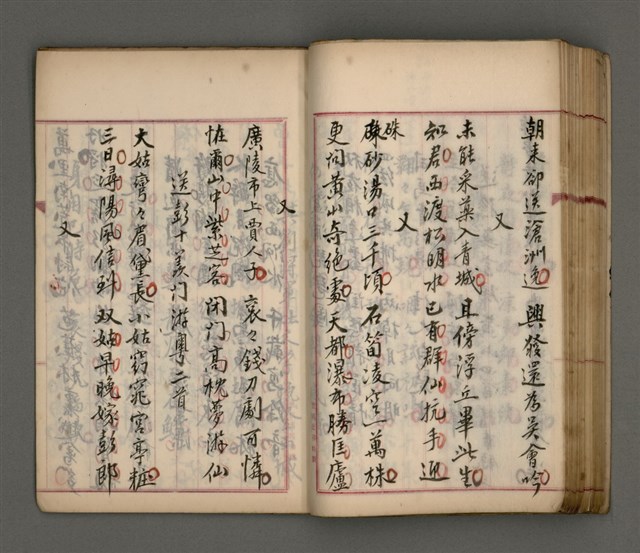 朝來卻送滄洲逸 興發還為吳會吟
又
未能采藥入青城 且傍浮丘畢此生
知君西渡松明水 已有群仙抗手迎
又
硃
硃砂湯口三千頃 石筍凌空一萬株
更问黃山奇绝處 天都瀑布勝匡廬
又
廣陵市上賈人子 衮々錢刀劇可憐
恠爾山中紫芝客 闭门高枕夢游仙
送彭十羡门游粵二首
大姑彎々眉黛長 小姑窈窕宮亭粧
三日潯陽風信到 双姑早晚嫁彭郎
又